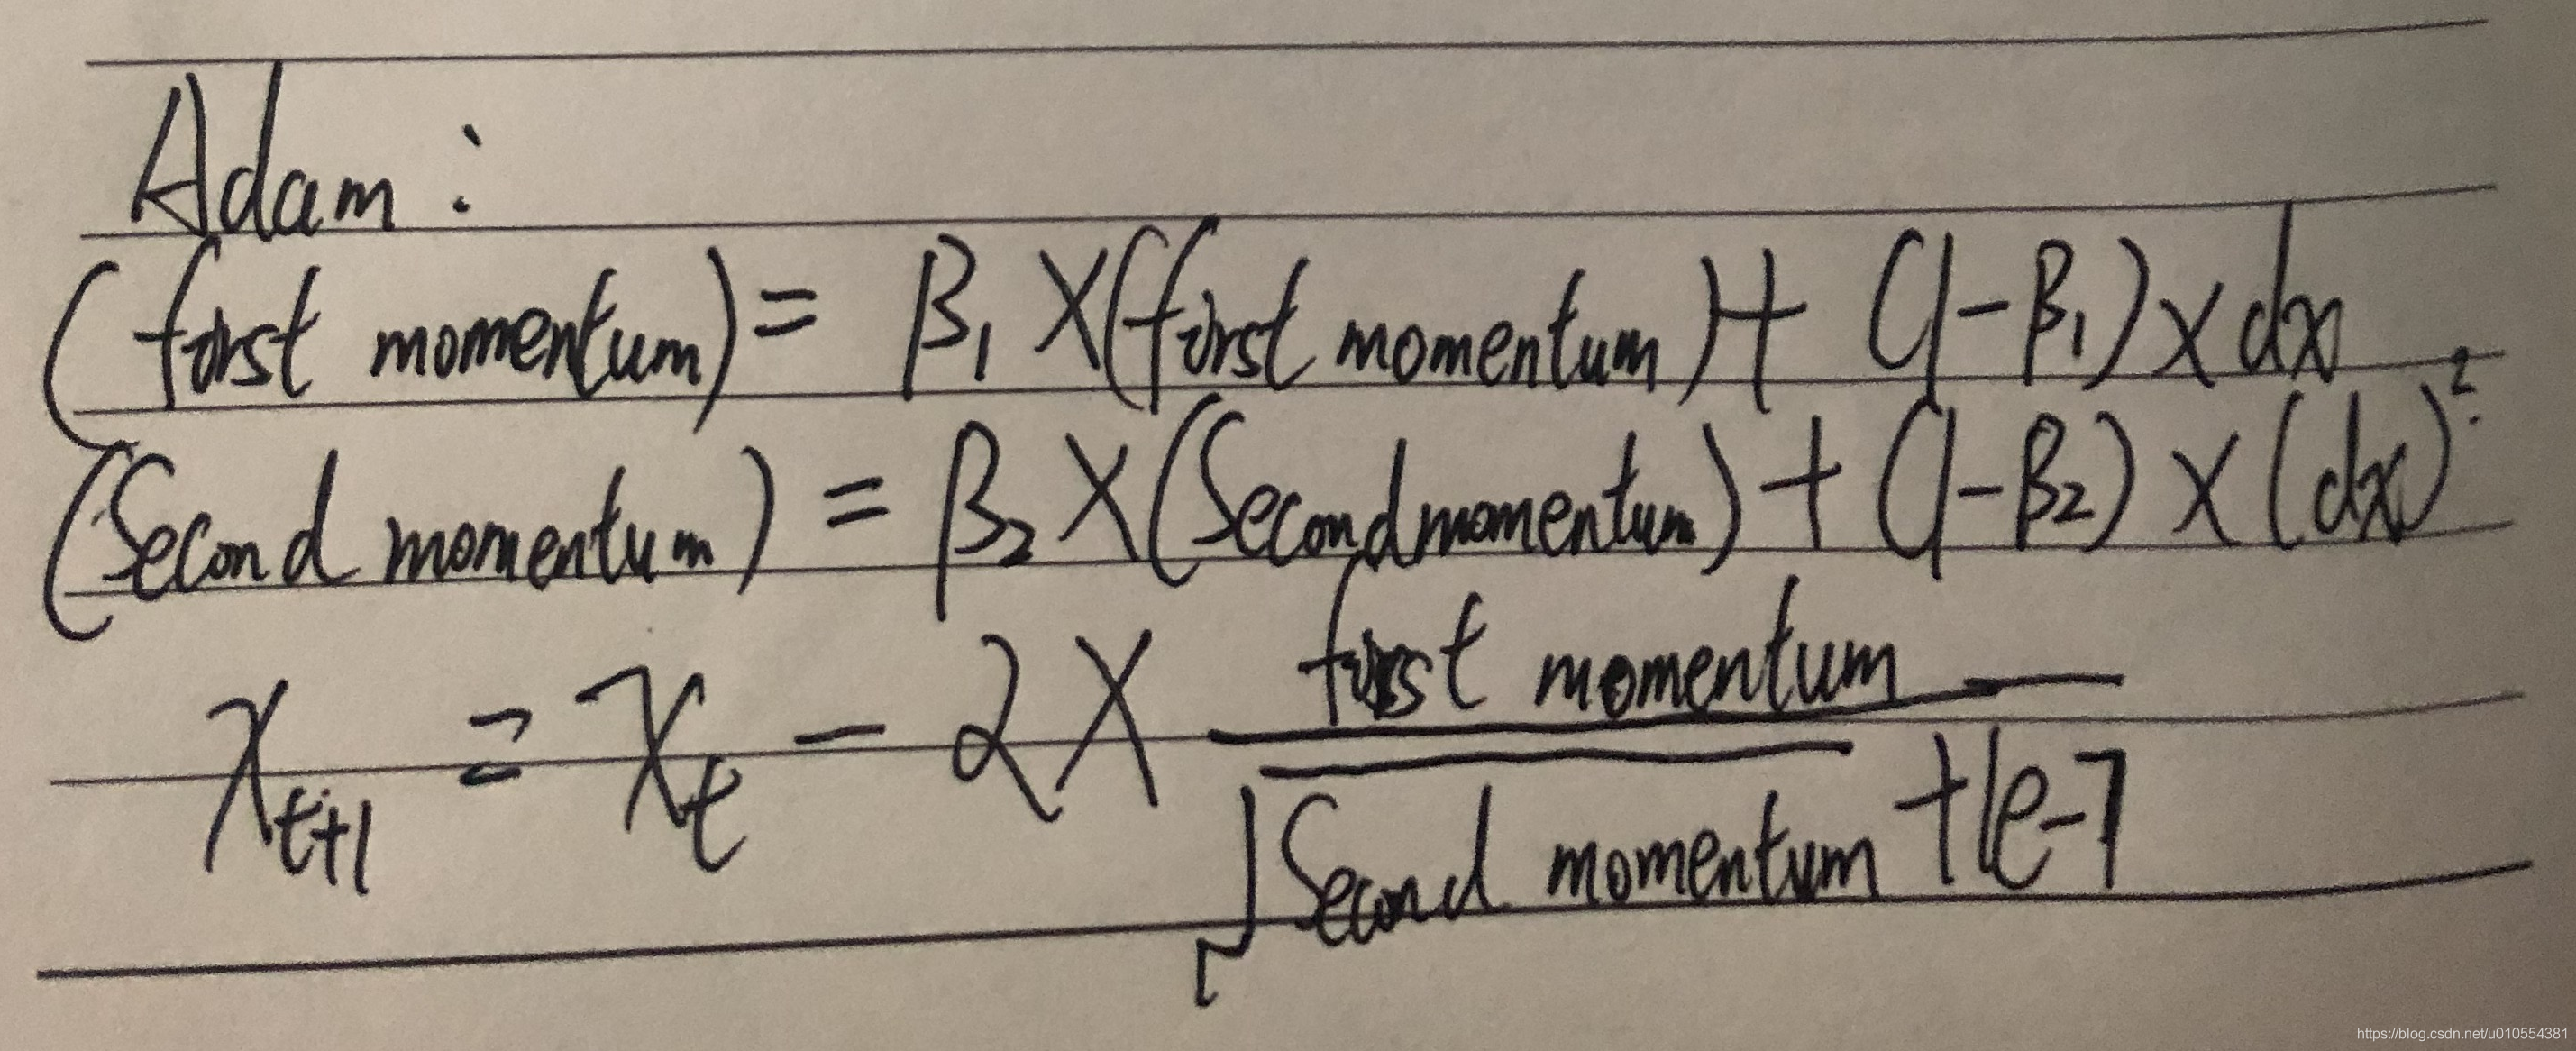 Adam:
(first momentum) = β₁ X (first momentum) + (1-β₁) X dx
(Second momentum) = β₂ X (Second momentum) + (1-β₂) X (dx)²
xₜ₊₁ = xₜ - α X first momentum / √Second momentum + 1e-7
https://blog.csdn.net/u010554381